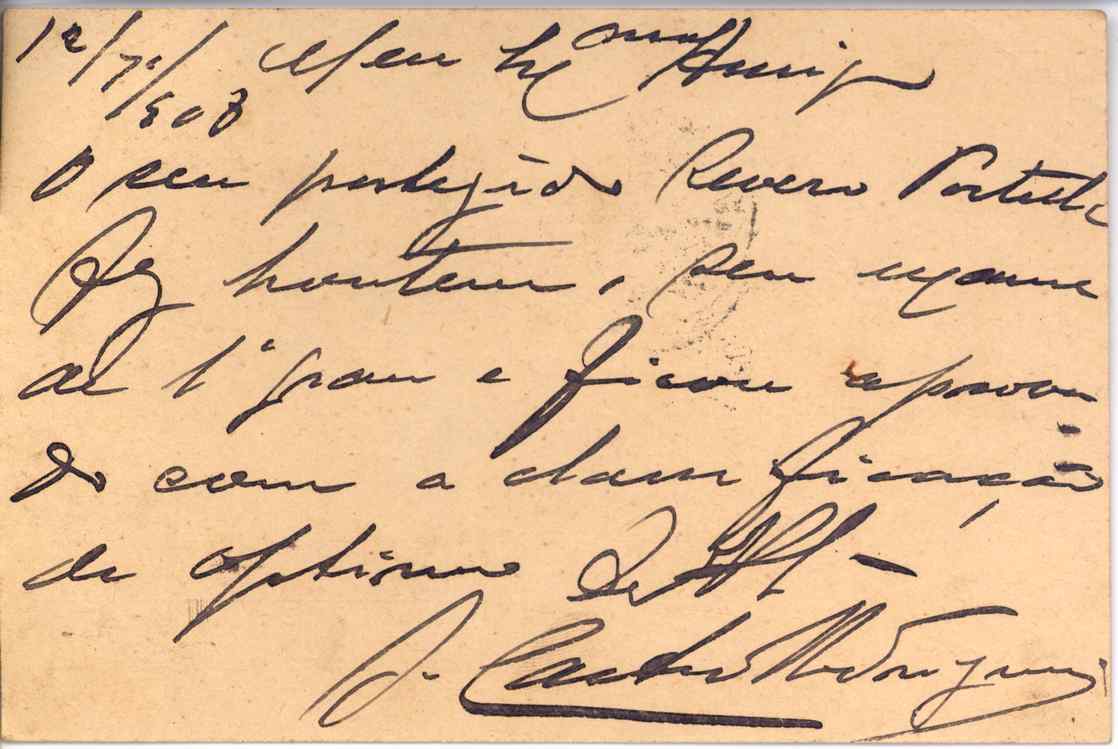 12/7/908 Meu Amigo
O seu protegido Severo Portella
fez hontem, seu exame
de 1º grau e ficou aprova
do com a classificação
de optimo
J. Castro Rodrigues